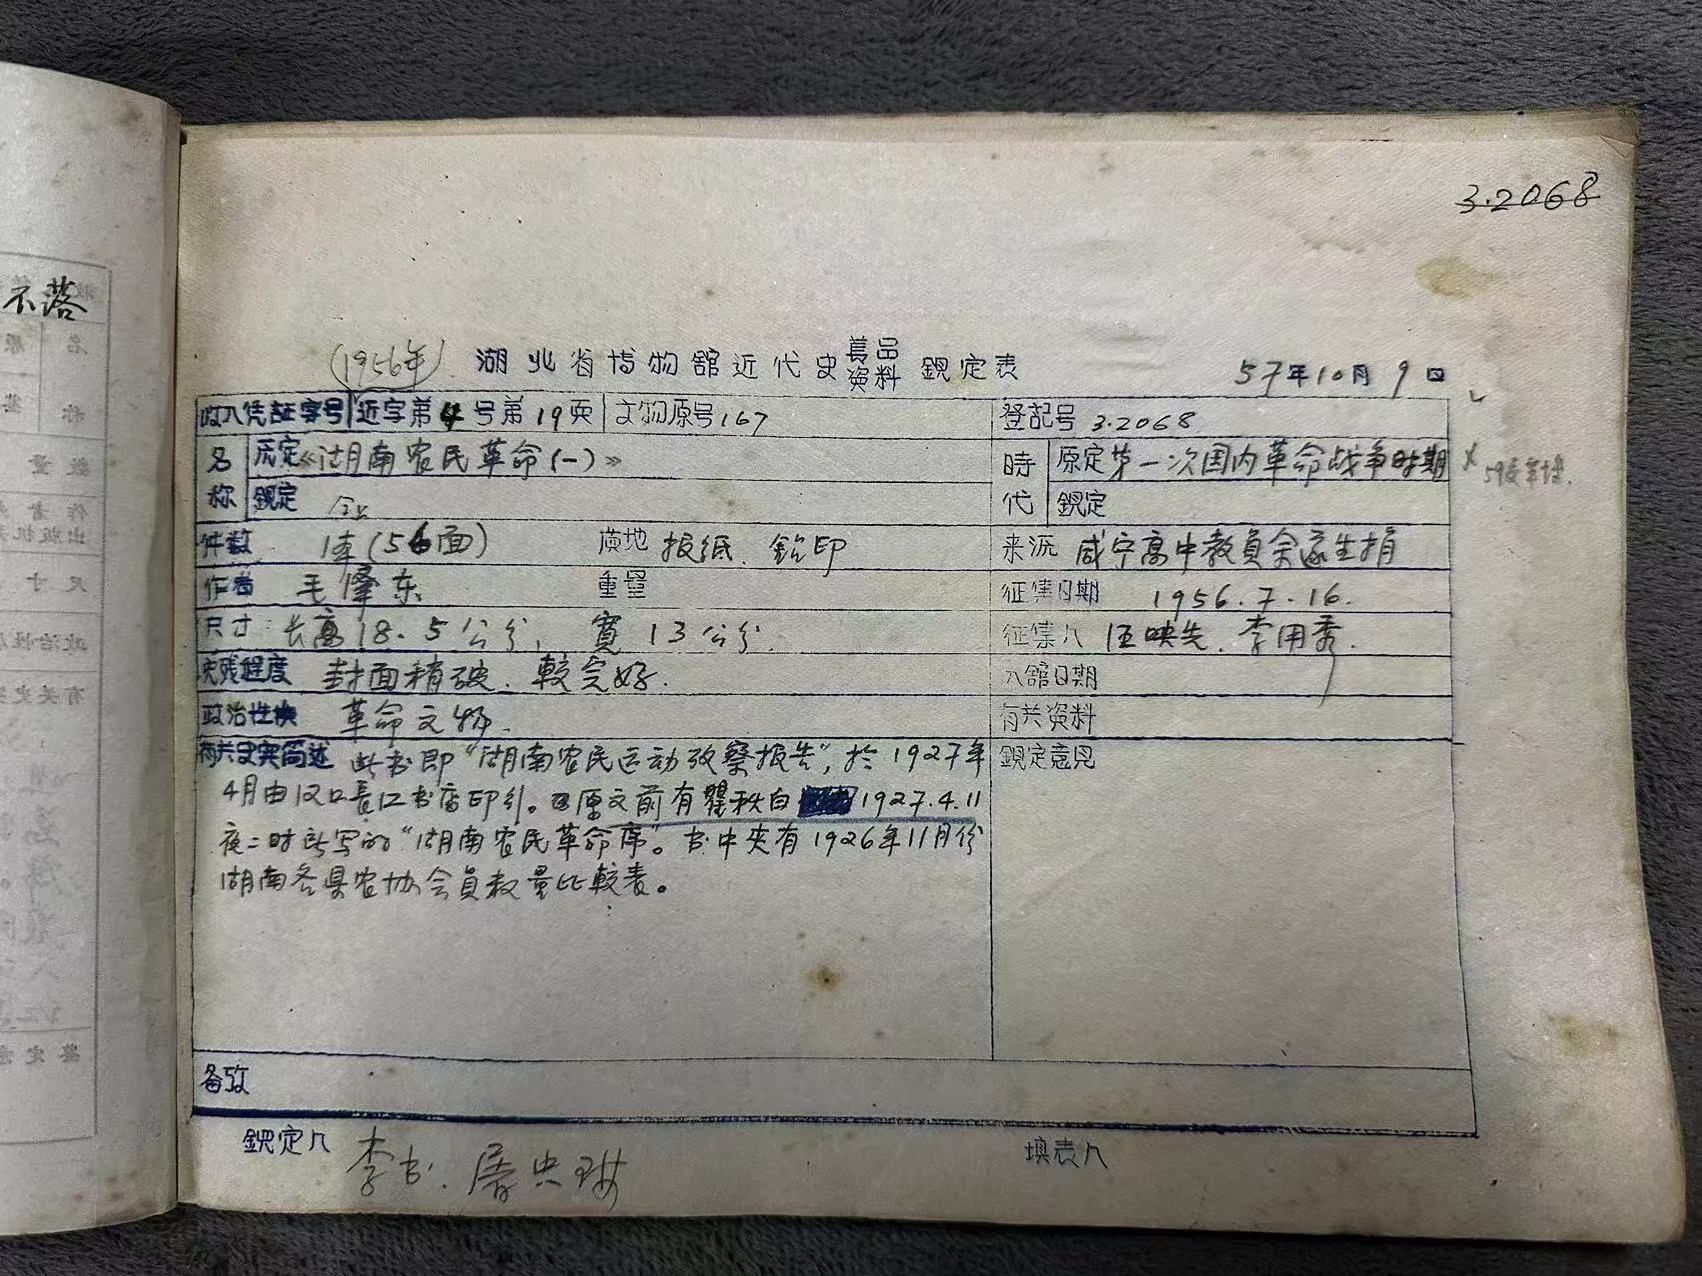 不落
3.2068
(1956年) 湖北省博物館近代史藏品資料鋧定表 57年10月9日
收入凭証字号 近字第4号第19页 文物原号167 登記号 3.2068
名称 原定 《湖南农民革命(一)》 時代 原定 第一次国内革命战争时期
鋧定 仝上 鋧定
件数 1本(56面) 质地 报纸 鉛印 来源 咸宁高中教員余家生捐
作者 毛澤东 重量 征集日期 1956.7.16.
尺寸 长高18.5公分, 寬13公分. 征集人 汪映先. 李用秀.
完残程度 封面稍破. 較完好. 入舘日期
政治性质 革命文物. 有关资料
有关史実简述 此书即"湖南农民运动攷察报告",於1927年 鋧定意见
4月由汉口長江书店印引。原文前有瞿秋白1927.4.11
夜二时所写的"湖南农民革命序"。书中夹有1926年11月份
湖南各县农协会員数量比較表。
备攷
鋧定人 李书. 填表人